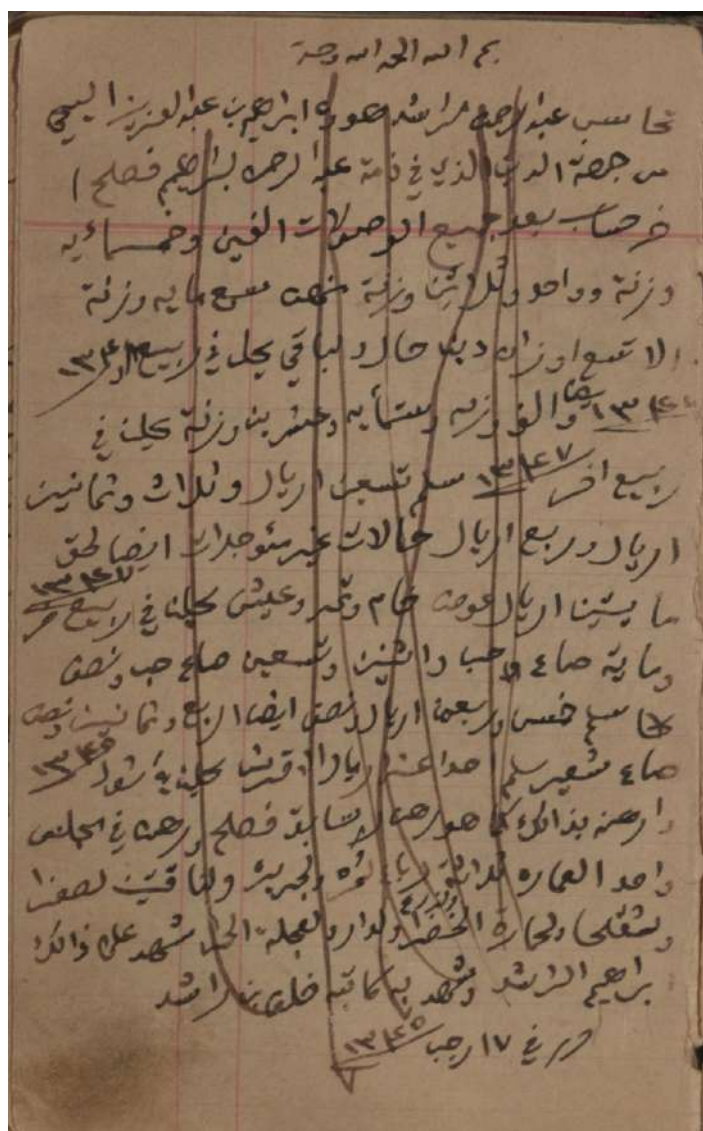 بسم الله الحمد لله وحده
تحاسب عبدالرحمن الراشد هو و ابراهيم بن عبدالعزيز اليحيى
من جهة الدين الذي في ذمة عبدالرحمن لبراهيم فصلح ا
خر حساب بعد جميع الوصولات الفين وخمسمائيه
وزنة وواحد وثلاثين وزنة منهن سبع مايه وزنة
الا تسع اوزان دين حال ولباقي يحل في ربيع اول ١٣٤٦
١٣٤٦ ايضا والف وزنه وستمأيه وعشرين وزنة يحلن في
ربيع اخر ١٣٤٧ سلم تسعين اريال وثلاث وثمانين
اريال وربع اريال حالات غير مئوجلات ايضا لحق
مايتينا اريال عوض خام وتمر وعيش يحلن في ربيع خر ١٣٤٧
ومایة صاع حب واثنين وتسعين صاع حب ونصف
صاع سلم خمس وربعين اريال ونصف ايضا اربع وثمانين ونصف
صاع شعير سلم احدا عشر اريال قرش يحلن شوال ١٣٤٥
وارهنه بذالك كما هو رهن لسابق فصلح ورهن في المجلس
واحد العماره
ولحماره الخضرا والزرع ولدار ولعجله شهد على ذالك
براهيم الراشد وشهد به كاتبه خلف بن راشد
حرر في ١٧ رجب ١٣٤٥